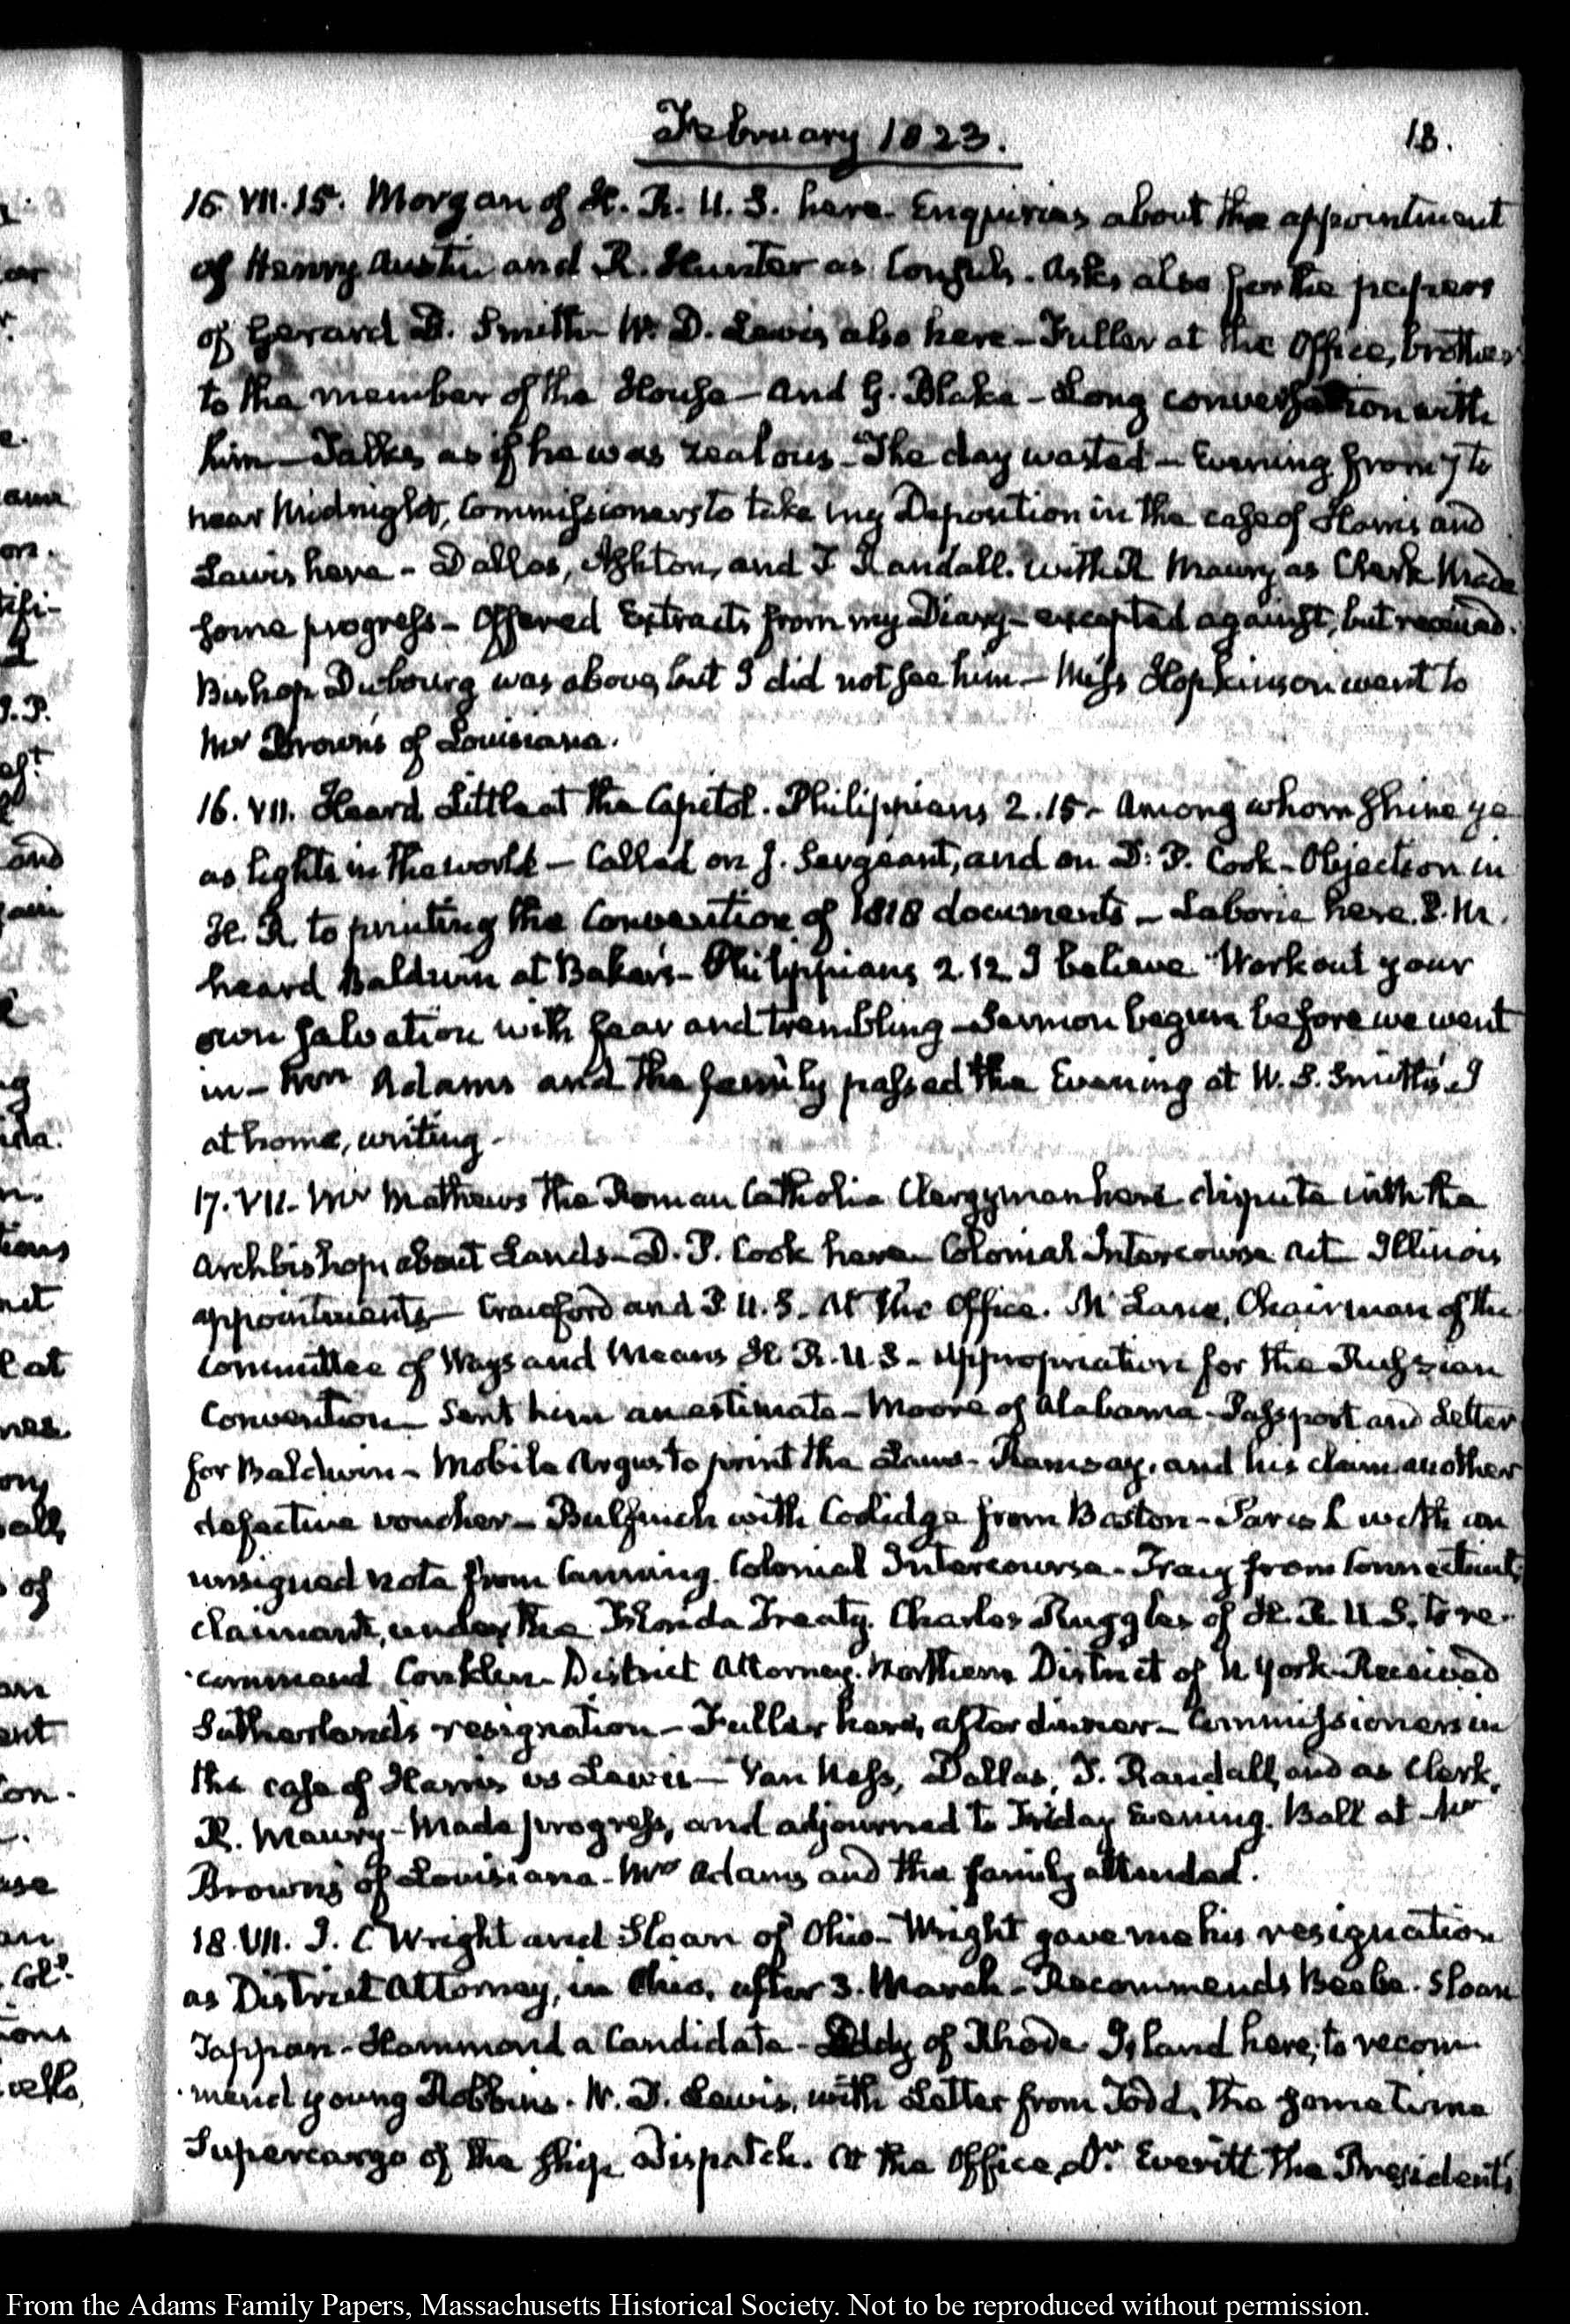 February 1823.
18.
15. VII.15. Morgan of H. R. U. S. here. Enquiries about the appointment
of Henry Austin and R. Hunter as Consuls. Asks also for the papers
of Gerard D. Smith — W. D. Lewis also here — Fuller at the Office, brother
to the member of the House — and G. Blake — Long conversation with
him — Talks as if he was zealous — The day wasted — Evening from 7 to
near Midnight, Commissioners to take my Deposition in the case of Harris and
Lewis here — Dallas, Ashton, and T Randall. with R Maury as Clerk Made
some progress — Offered Extracts from my Diary — excepted against, but received.
Bishop Dubourg was above, but I did not see him — Miss Hopkinson went to
Mr Brown's of Louisiana.
16. VII. Heard Little at the Capitol. Philippians 2.15 — Among whom shine ye
as lights in the world — Called on J. Sergeant, and on D: P. Cook — Objection in
H. R. to printing the Convention of 1818 documents — Laborie here. P. M.
heard Baldwin at Baker's — Philippians 2.12 I believe Work out your
own salvation with fear and trembling — Sermon begun before we went
in — Mrs Adams and the family passed the Evening at W. S. Smith's, I
at home, writing —
17. VII — Mr Mathews the Roman Catholic Clergyman here dispute with the
Archbishop about Lands — D. P. Cook here — Colonial Intercourse Act Illinois
appointments — Crawford and P. U. S. At the Office. McLane, Chairman of the
Committee of Ways and Means H. R. U. S — Appropriation for the Russian
Convention — Sent him an estimate — Moore of Alabama — Passport and Letter
for Baldwin — Mobile Argus to print the Laws — Ramsay, and his claim another
defective voucher — Bulfinch with Coolidge from Boston — Parish with an
unsigned note from Canning. Colonial Intercourse — Tracy from Connecticut,
claimant, under the Florida Treaty. Charles Ruggles of H. R. U S. to re-
commend Conklin — District Attorney. Northern District of N. York — Received
Sutherland's resignation — Fuller here, after dinner — Commissioners in
the case of Harris vs Lewis — Van Ness, Dallas, T. Randall, and as Clerk,
R. Maury — Made progress, and adjourned to Friday Evening. Ball at Mr
Brown's of Louisiana — Mrs Adams and the family attended.
18. VII. J. C Wright and Sloan of Ohio — Wright gave me his resignation
as District Attorney, in Ohio, after 3. March — Recommends Beebe. Sloan
Tappan — Hammond a Candidate — Eddy of Rhode Island here, to recom
mend young Robbins. W. D. Lewis, with Letter from Todd, the sometime
Supercargo of the ship Dispatch. At the Office, Dr. Everitt the President's
From the Adams Family Papers, Massachusetts Historical Society. Not to be reproduced without permission.